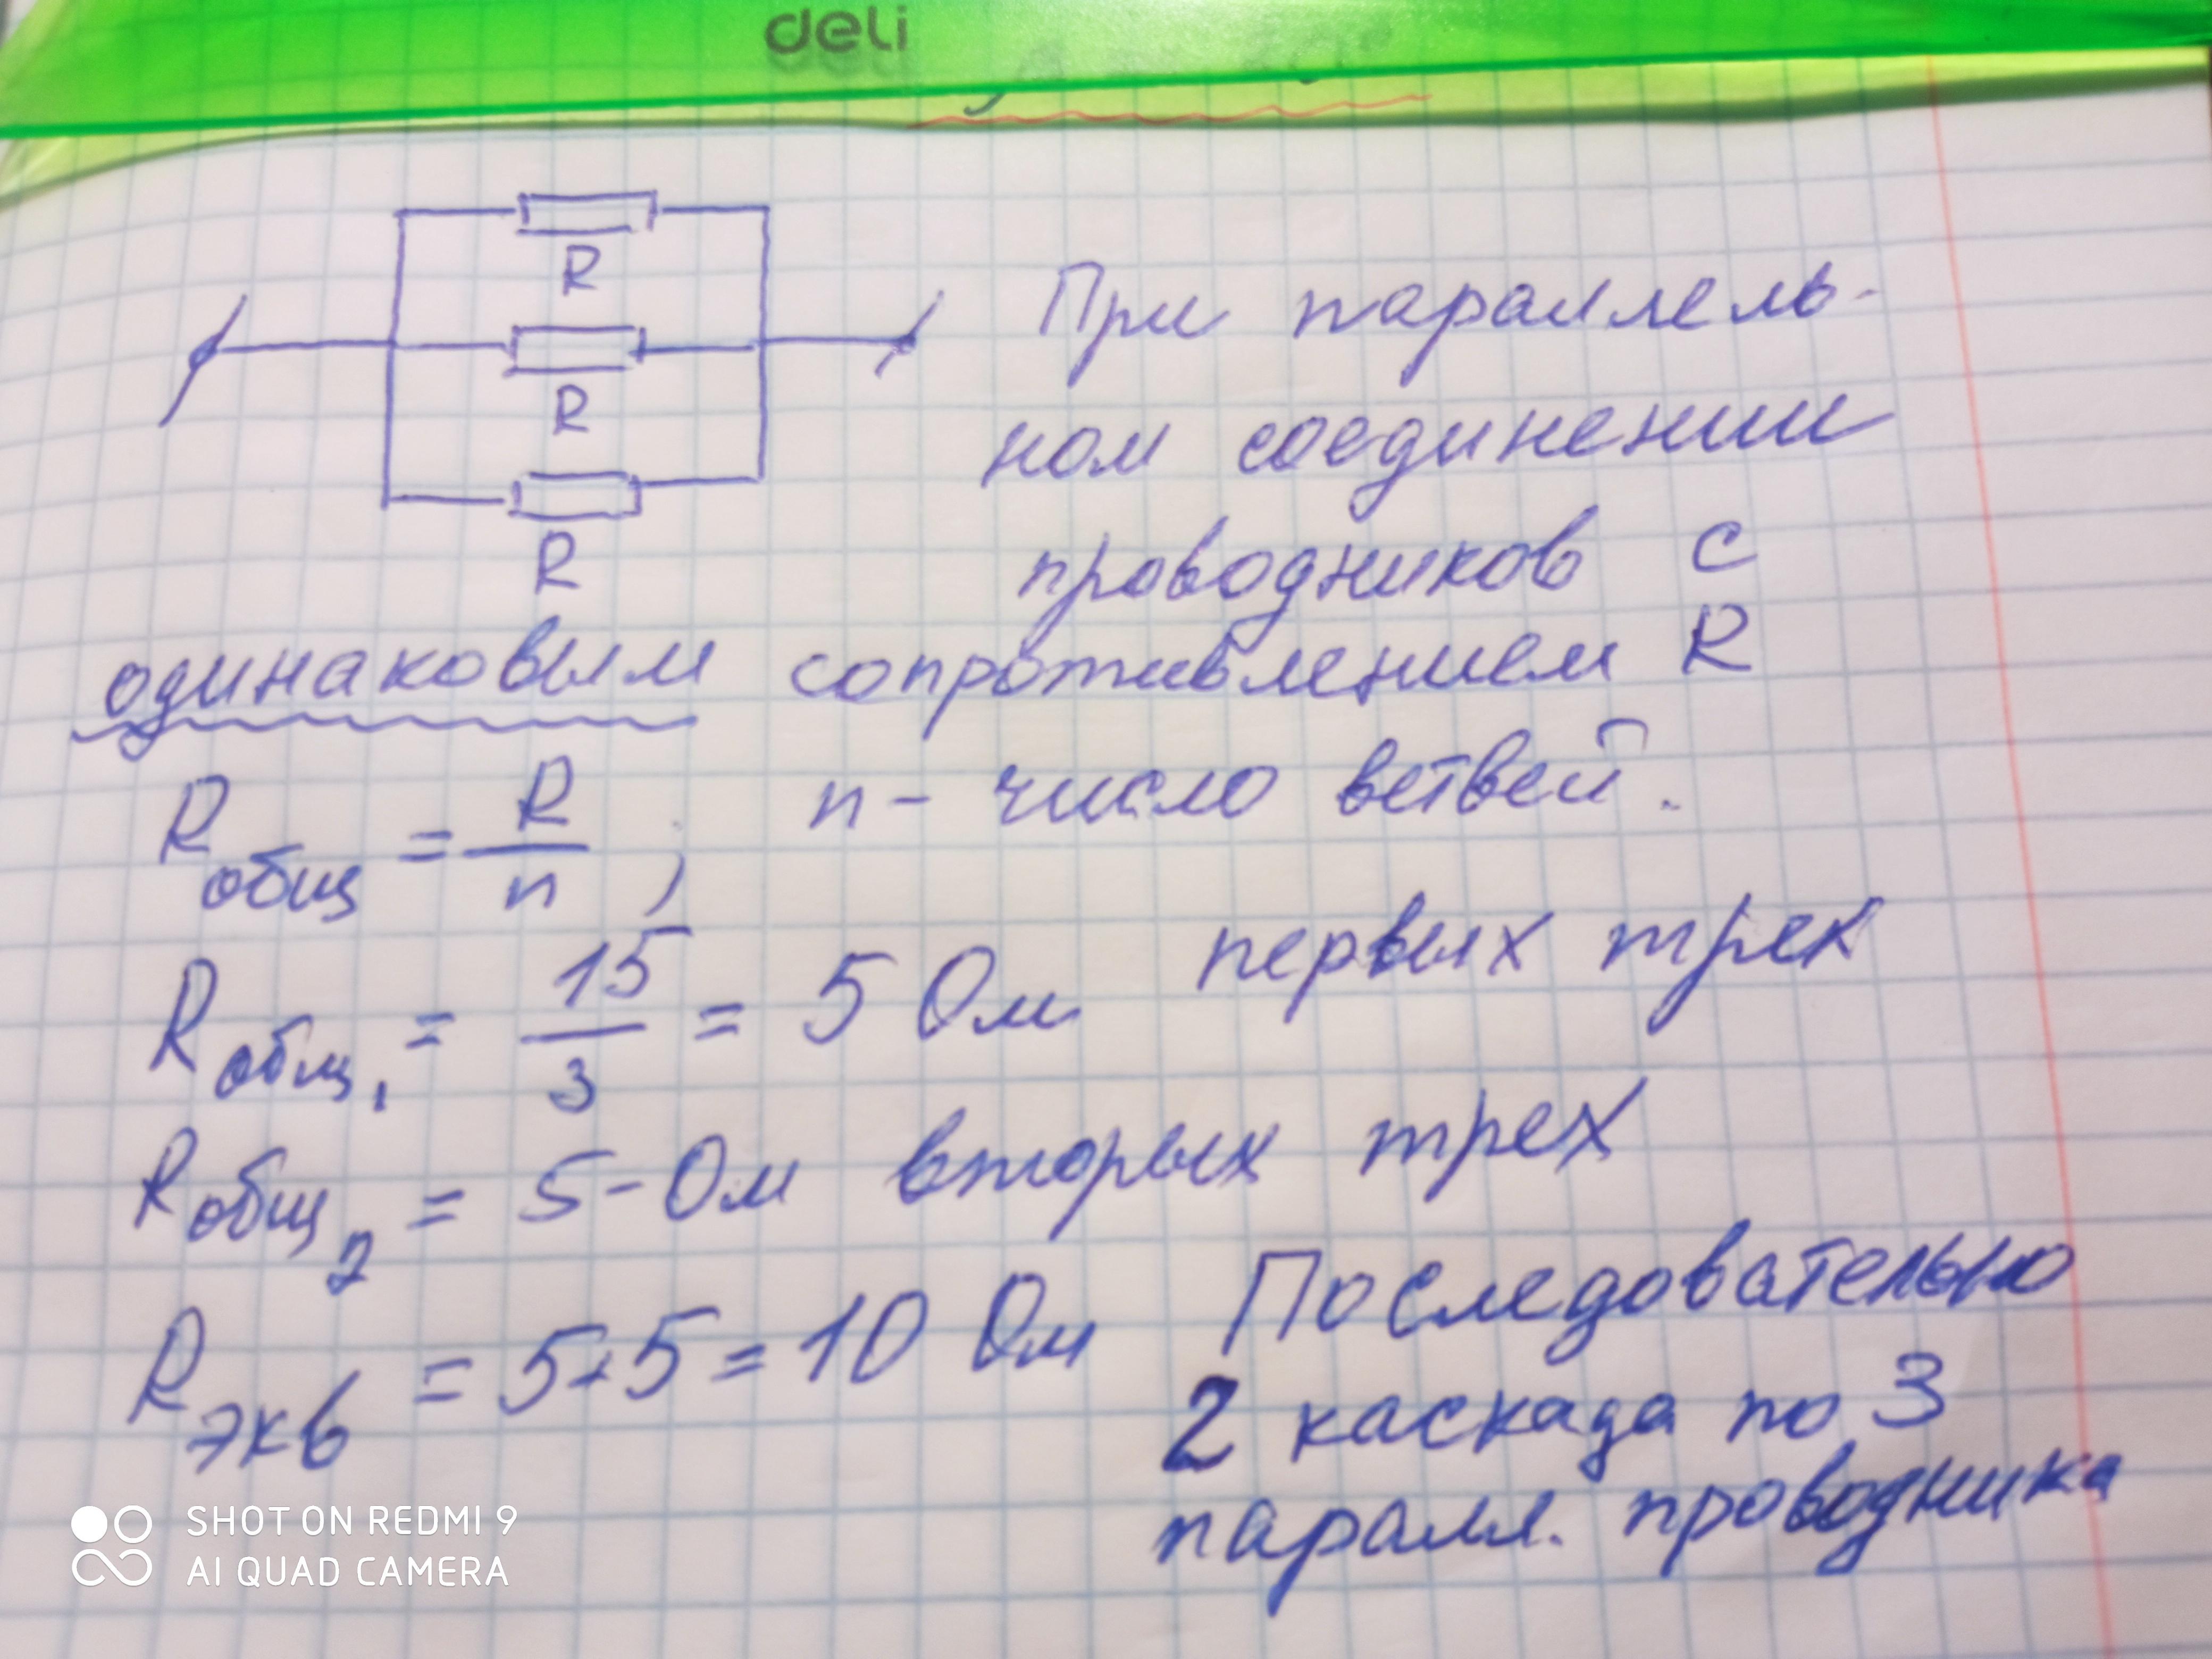 deli
R
R
R
При параллель-
ном соединении
проводников с
одинаковым сопротивлением R
Rобщ = R/n ; n - число ветвей.
Rобщ1 = 15/3 = 5 Ом первых трех
Rобщ2 = 5 - Ом вторых трех
Rэкв = 5+5 = 10 Ом Последовательно
2 каскада по 3
паралл. проводника
SHOT ON REDMI 9
AI QUAD CAMERA